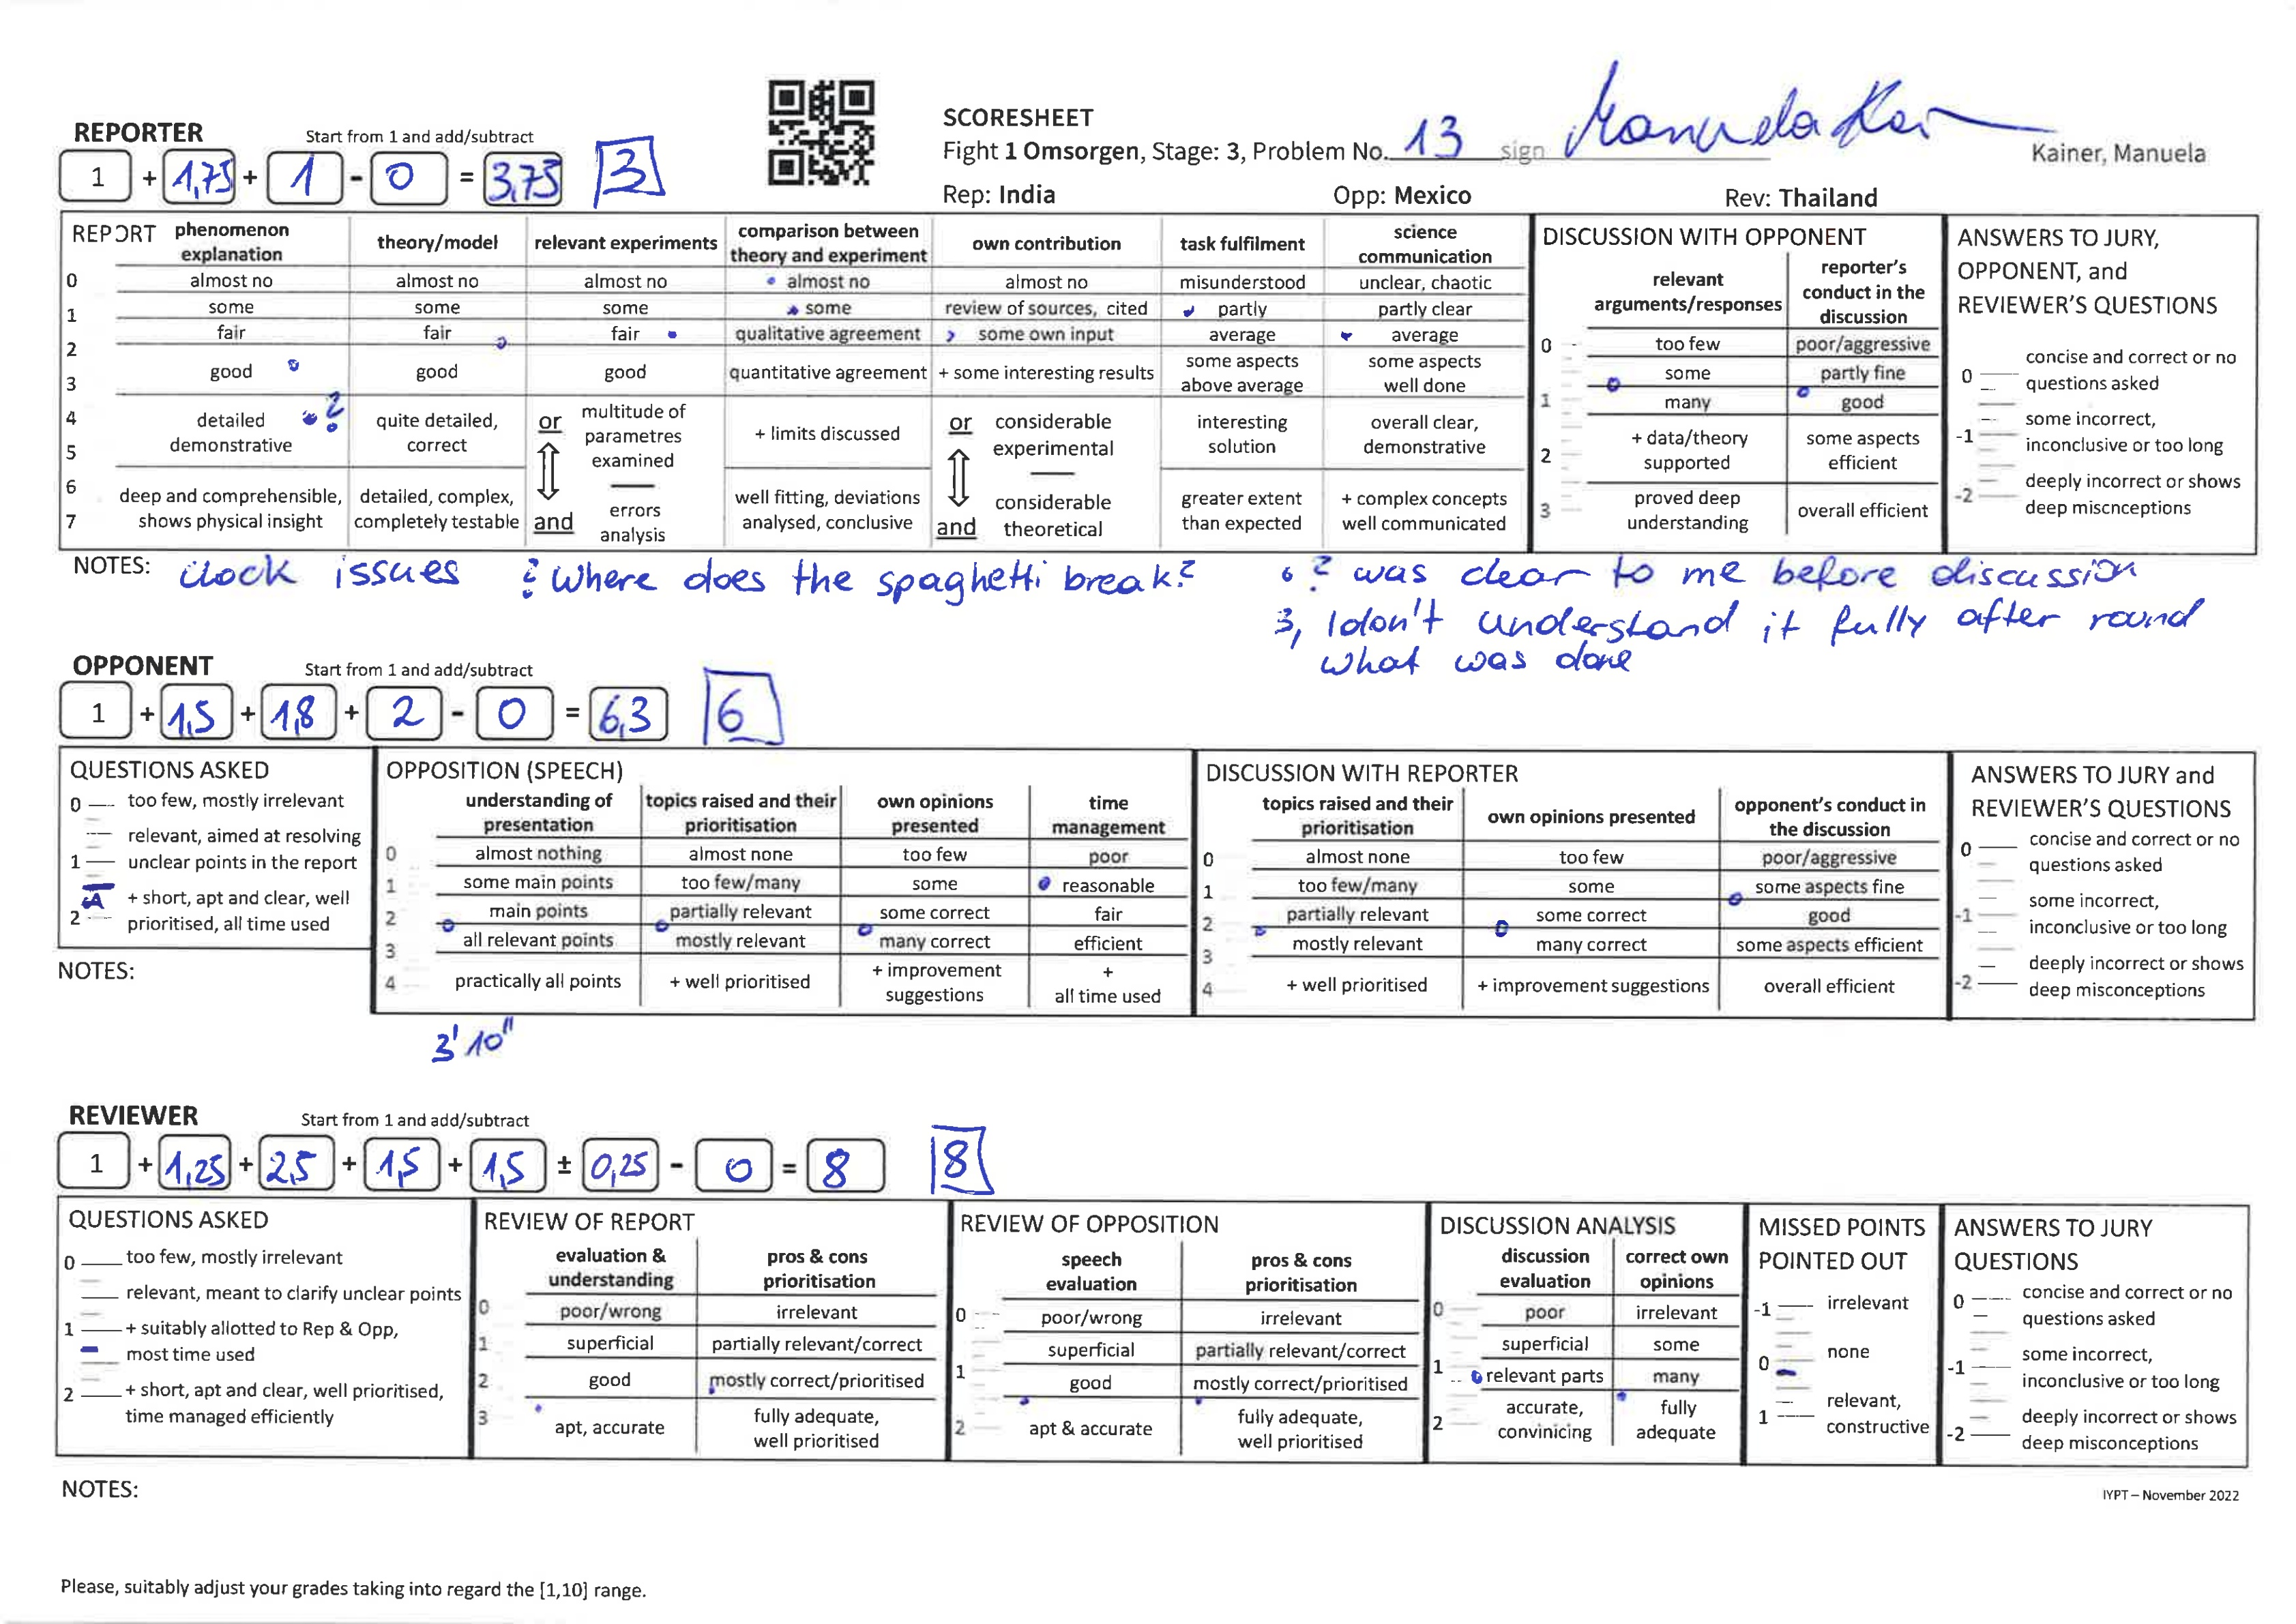 SCORESHEET
REPORTER Start from 1 and add/subtract
Fight 1 Omsorgen, Stage: 3, Problem No. 13 sign Kainer, Manuela
1 + 1,75 + 1 - 0 = 3,75 3
Rep: India Opp: Mexico Rev: Thailand
REPORT
phenomenon explanation
theory/model
relevant experiments
comparison between theory and experiment
own contribution
task fulfilment
science communication
0 almost no almost no almost no almost no almost no misunderstood unclear, chaotic
1 some some some some review of sources, cited partly partly clear
2 fair fair fair qualitative agreement some own input average average
3 good good good quantitative agreement + some interesting results some aspects above average some aspects well done
4
5
detailed demonstrative
quite detailed, correct
or multitude of parametres examined
+ limits discussed
or considerable experimental
interesting solution
overall clear, demonstrative
6
7
deep and comprehensible, shows physical insight
detailed, complex, completely testable
and errors analysis
well fitting, deviations analysed, conclusive
and considerable theoretical
greater extent than expected
+ complex concepts well communicated
?
DISCUSSION WITH OPPONENT
relevant arguments/responses
reporter's conduct in the discussion
0 too few poor/aggressive
some partly fine
1 many good
2 + data/theory supported some aspects efficient
3 proved deep understanding overall efficient
ANSWERS TO JURY,
OPPONENT, and
REVIEWER'S QUESTIONS
0 concise and correct or no questions asked
-1 some incorrect, inconclusive or too long
-2 deeply incorrect or shows deep miscnceptions
NOTES: clock issues ? Where does the spaghetti break? ? was clear to me before discussion
3, I don't understand it fully after round
what was done
OPPONENT Start from 1 and add/subtract
1 + 1,5 + 1,8 + 2 - 0 = 6,3 6
QUESTIONS ASKED
0 too few, mostly irrelevant
relevant, aimed at resolving
1 unclear points in the report
+ short, apt and clear, well
2 prioritised, all time used
NOTES:
OPPOSITION (SPEECH)
understanding of presentation
topics raised and their prioritisation
own opinions presented
time management
0 almost nothing almost none too few poor
1 some main points too few/many some reasonable
2 main points partially relevant some correct fair
3 all relevant points mostly relevant many correct efficient
4 practically all points + well prioritised + improvement suggestions + all time used
3' 10"
DISCUSSION WITH REPORTER
topics raised and their prioritisation
own opinions presented
opponent's conduct in the discussion
0 almost none too few poor/aggressive
1 too few/many some some aspects fine
2 partially relevant some correct good
3 mostly relevant many correct some aspects efficient
4 + well prioritised + improvement suggestions overall efficient
ANSWERS TO JURY and
REVIEWER'S QUESTIONS
0 concise and correct or no questions asked
-1 some incorrect, inconclusive or too long
-2 deeply incorrect or shows deep misconceptions
REVIEWER Start from 1 and add/subtract
1 + 1,25 + 2,5 + 1,5 + 1,5 ± 0,25 - 0 = 8 8
QUESTIONS ASKED
0 too few, mostly irrelevant
relevant, meant to clarify unclear points
1 + suitably allotted to Rep & Opp,
most time used
2 + short, apt and clear, well prioritised,
time managed efficiently
REVIEW OF REPORT
evaluation & understanding
pros & cons prioritisation
0 poor/wrong irrelevant
1 superficial partially relevant/correct
2 good mostly correct/prioritised
3 apt, accurate fully adequate, well prioritised
REVIEW OF OPPOSITION
speech evaluation
pros & cons prioritisation
0 poor/wrong irrelevant
superficial partially relevant/correct
1 good mostly correct/prioritised
2 apt & accurate fully adequate, well prioritised
DISCUSSION ANALYSIS
discussion evaluation
correct own opinions
0 poor irrelevant
superficial some
1 relevant parts many
2 accurate, convinicing fully adequate
MISSED POINTS
POINTED OUT
-1 irrelevant
0 none
1 relevant, constructive
ANSWERS TO JURY
QUESTIONS
0 concise and correct or no questions asked
-1 some incorrect, inconclusive or too long
-2 deeply incorrect or shows deep misconceptions
NOTES:
IYPT – November 2022
Please, suitably adjust your grades taking into regard the [1,10] range.